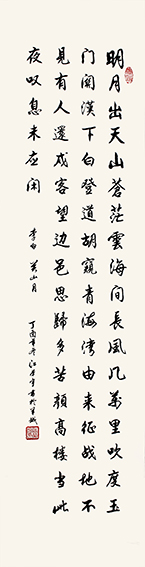 明月出天山蒼茫雲海間長風几萬里吹度玉
门關漢下白登道胡窺青海湾由来征战地不
見有人還戍客望边邑思歸多苦顏高楼当此
夜叹息未应闲 李白 关山月
丁酉年冬